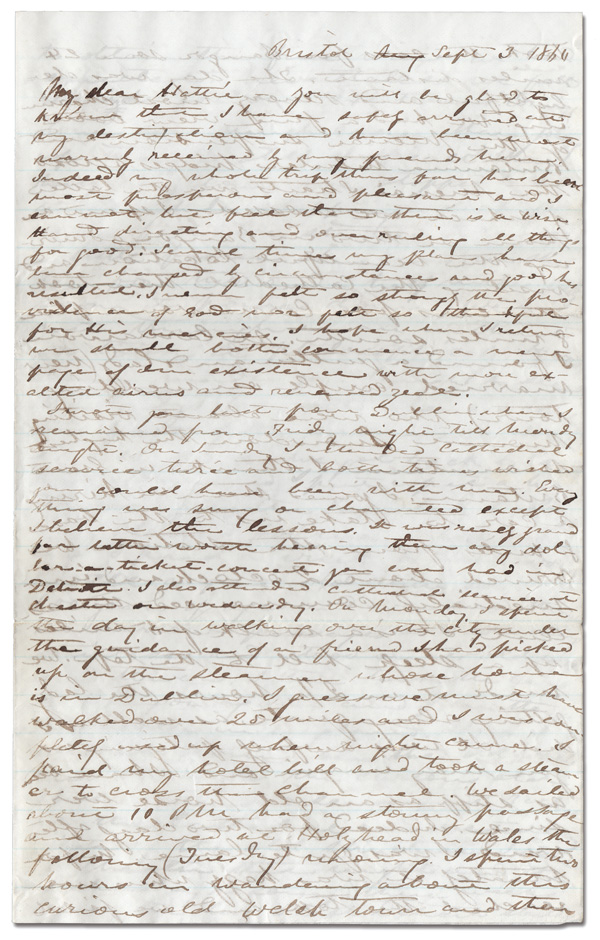 Bristol Aug Sept 3 1860
My dear Hattie - you will be glad to
know that I have safely arrived at
my destination and have been most
warmly received by my friends here.
Indeed my whole trip thus far has been
most prosperous and pleasant and I
cannot but feel that there is a wise
hand directing and overruling all things
for good. Several times my plans have
been changed by circumstances and good has
resulted. I never felt so strongly the pro
vidence of God nor felt so
for His mercies. I hope when I return
we shall both commence a new
page of our existence with more ex
alted aims and renewed zeal.
I wrote you last from Dublin where I
remained from Friday night till Monday
night. On Sunday I attended cathedral
service twice and both times wished
you could have been with me. Every
thing was sung or chanted except
I believe the lessons. It was really good
far better worth hearing than any dol
lar a ticket concert you ever had in
Detroit. I also attended cathedral service at
Chester on Wednesday. On Monday I spent
the day in walking over the city under
the guidance of a friend I had picked
up on the steamer whose home
is in Dublin. I guess we must have
walked over 20 miles and I was com
pletely used up when night came. I
paid my hotel bill and took a steam
er to cross the Channel. We sailed
about 10 PM had a stormy passage
and arrived at Holyhead in Wales the
following (Tuesday) morning. I spent two
hours in wandering about this
curious old Welch town and then